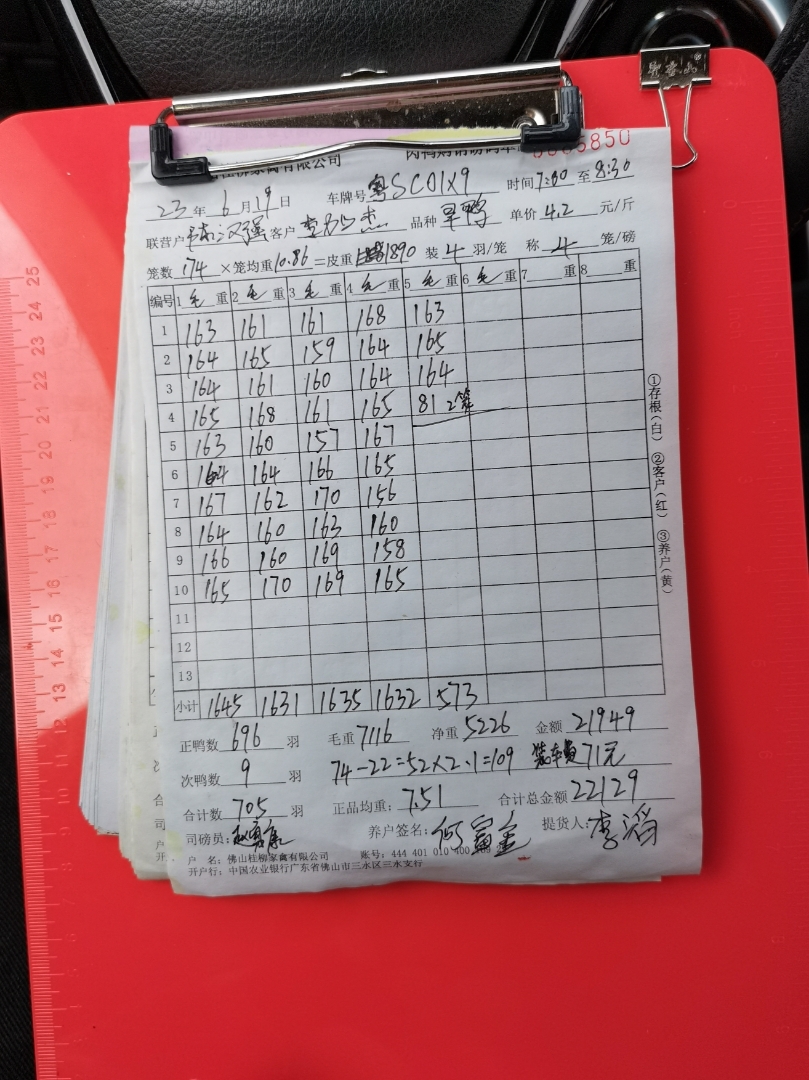 桂柳家禽有限公司 肉鸭购销磅码单 5850
23年6月19日 车牌号 粤SC01X9 时间7:00至8:30
联营户 陆汉强 客户 品种 旱鸭 单价 4.2 元/斤
笼数 174 ×笼均重 10.86 =皮重 1890 装 4 羽/笼 称 4 笼/磅
编号 1 毛 重 2 毛 重 3 毛 重 4 毛 重 5 毛 重 6 毛 重 7 重 8 重
1 163 161 161 168 163
2 164 165 159 164 165
3 164 161 160 164 164
4 165 168 161 165 81 2笼
5 163 160 157 167
6 164 164 166 165
7 167 162 170 156
8 164 160 163 160
9 166 160 169 158
10 165 170 169 165
11
12
13
小计 1645 1631 1635 1632 573
正鸭数 696 羽 毛重 7116 净重 5226 金额 21949
次鸭数 9 羽 74-22=52×2.1=109 装车费 71元
合计数 705 羽 正品均重: 7.51 合计总金额 22129
司磅员: 养户签名: 何富金 提货人: 李滔
户 名: 佛山桂柳家禽有限公司 账号: 444 401 010 400
开户行: 中国农业银行广东省佛山市三水区三水支行
①存根(白) ②客户(红) ③养户(黄)